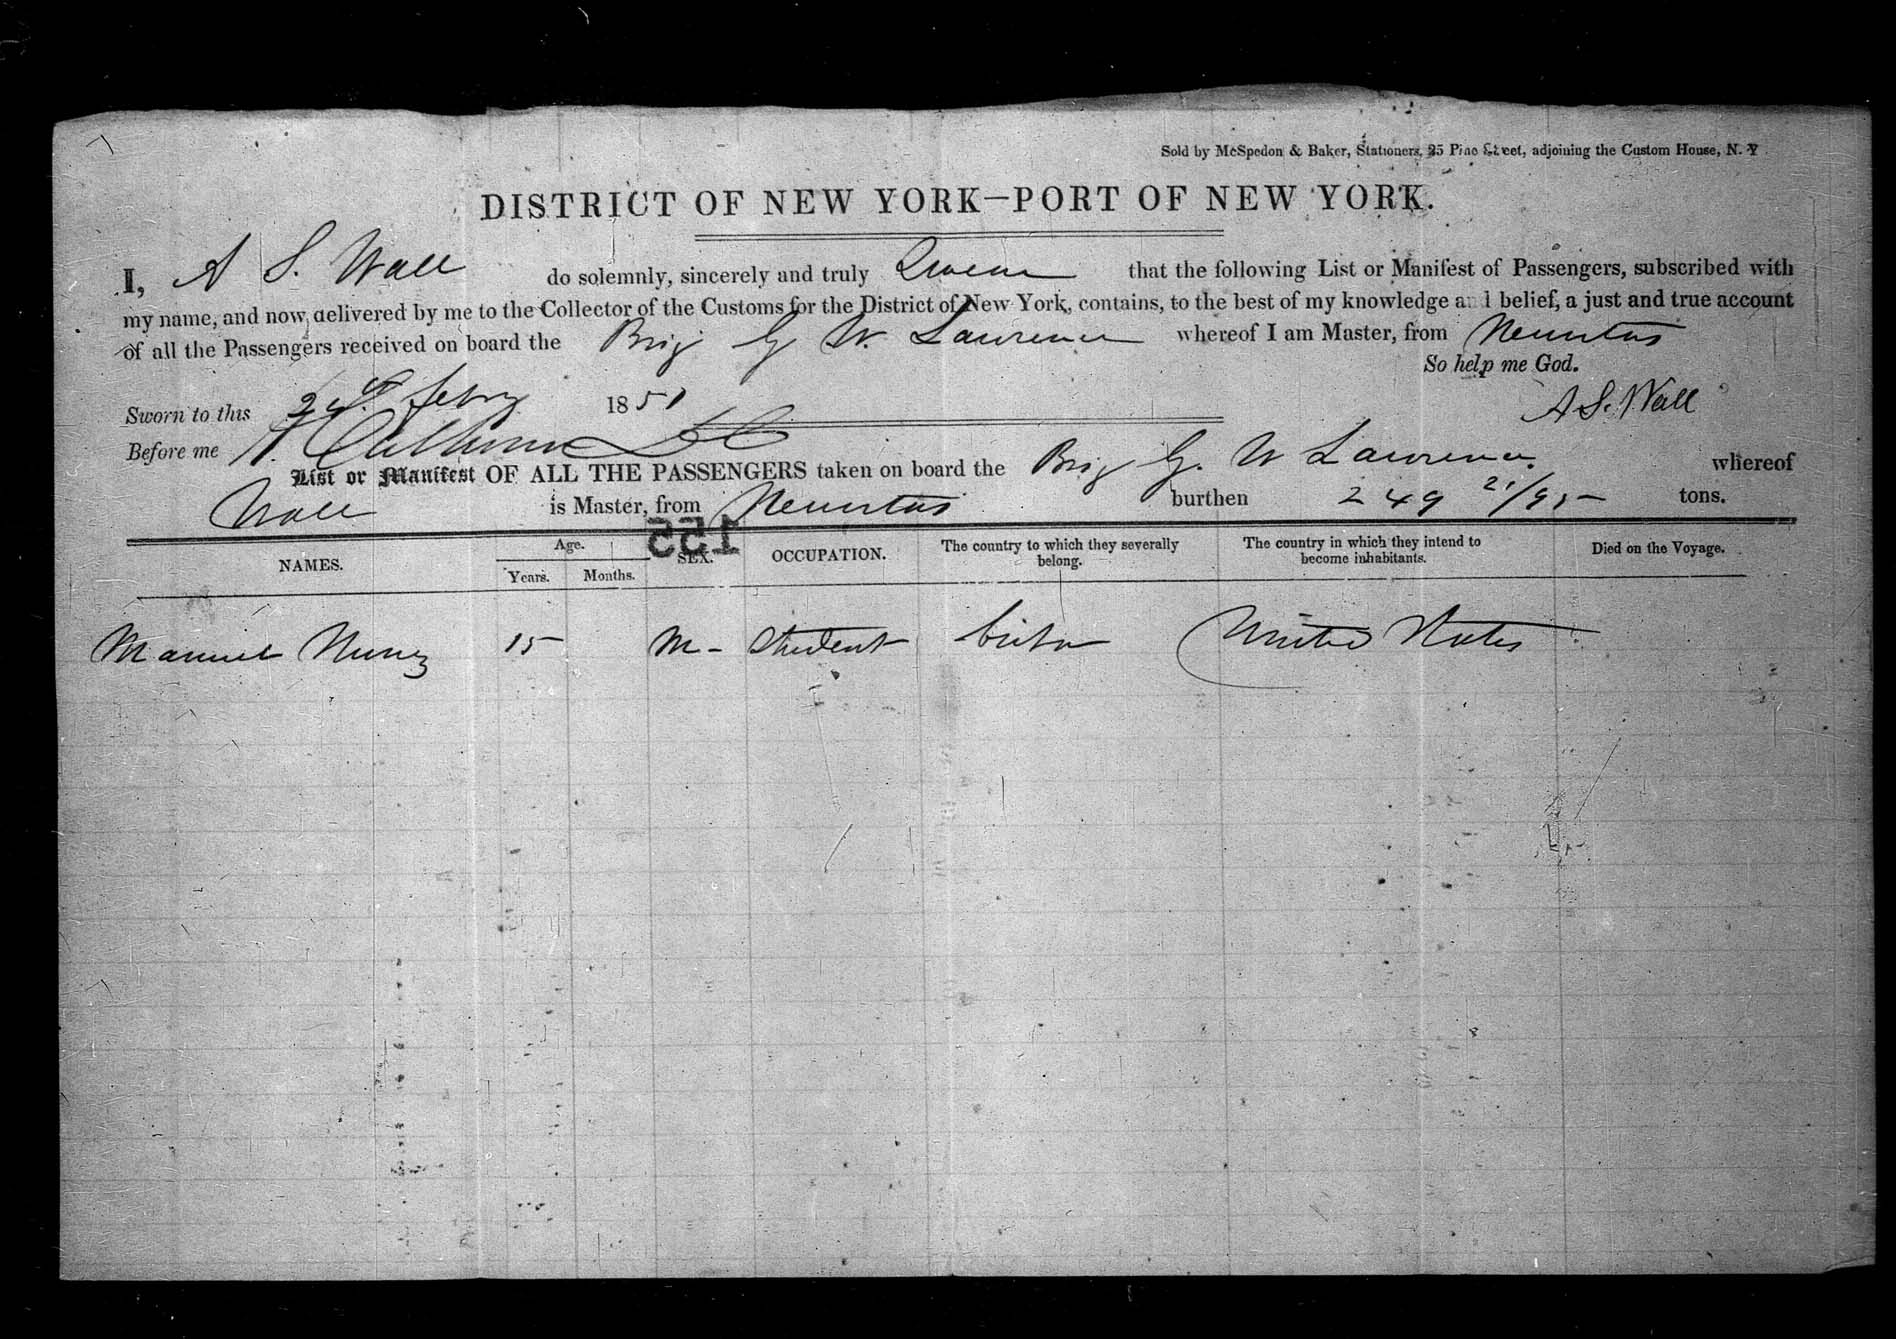 Sold by McSpedon & Baker, Stationers, 25 Pine Street, adjoining the Custom House, N. Y
DISTRICT OF NEW YORK—PORT OF NEW YORK.
I, A S. Wall do solemnly, sincerely and truly Swear that the following List or Manifest of Passengers, subscribed with
my name, and now delivered by me to the Collector of the Customs for the District of New York, contains, to the best of my knowledge and belief, a just and true account
of all the Passengers received on board the Brig G W. Lawrence whereof I am Master, from Neuvitas
So help me God.
Sworn to this Feby 1851
A S. Wall
Before me
List or Manifest OF ALL THE PASSENGERS taken on board the Brig G. W Lawrence whereof
Wall is Master, from Neuvitas burthen 249 21/95 tons.
155
NAMES. Age. Years. Months. SEX. OCCUPATION. The country to which they severally belong. The country in which they intend to become inhabitants. Died on the Voyage.
Manuel Nunez 15 M - Student Cuba United States